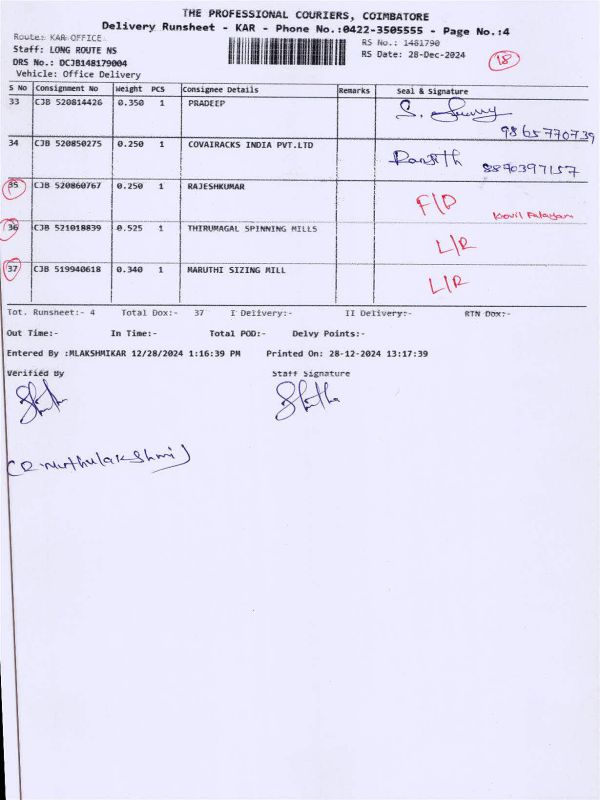 THE PROFESSIONAL COURIERS, COIMBATORE
Delivery Runsheet - KAR - Phone No.:0422-3505555 - Page No.:4
Route: KAR OFFICE
RS No.: 1481790
Staff: LONG ROUTE NS
RS Date: 28-Dec-2024
18
DRS No.: DCJB148179004
Vehicle: Office Delivery
S No Consignment No Weight PCS Consignee Details Remarks Seal & Signature
33 CJB 520814426 0.350 1 PRADEEP
9865770739
34 CJB 520850275 0.250 1 COVAIRACKS INDIA PVT.LTD
Ranjith 8870397157
35 CJB 520860767 0.250 1 RAJESHKUMAR
F/D
36 CJB 521018839 0.525 1 THIRUMAGAL SPINNING MILLS
L/R
37 CJB 519940618 0.340 1 MARUTHI SIZING MILL
L/R
Tot. Runsheet:- 4 Total Dox:- 37 I Delivery:- II Delivery:- RTN Dox:-
Out Time:- In Time:- Total POD:- Delvy Points:-
Entered By :MLAKSHMIKAR 12/28/2024 1:16:39 PM Printed On: 28-12-2024 13:17:39
Verified By Staff Signature
(R muthulakshmi)